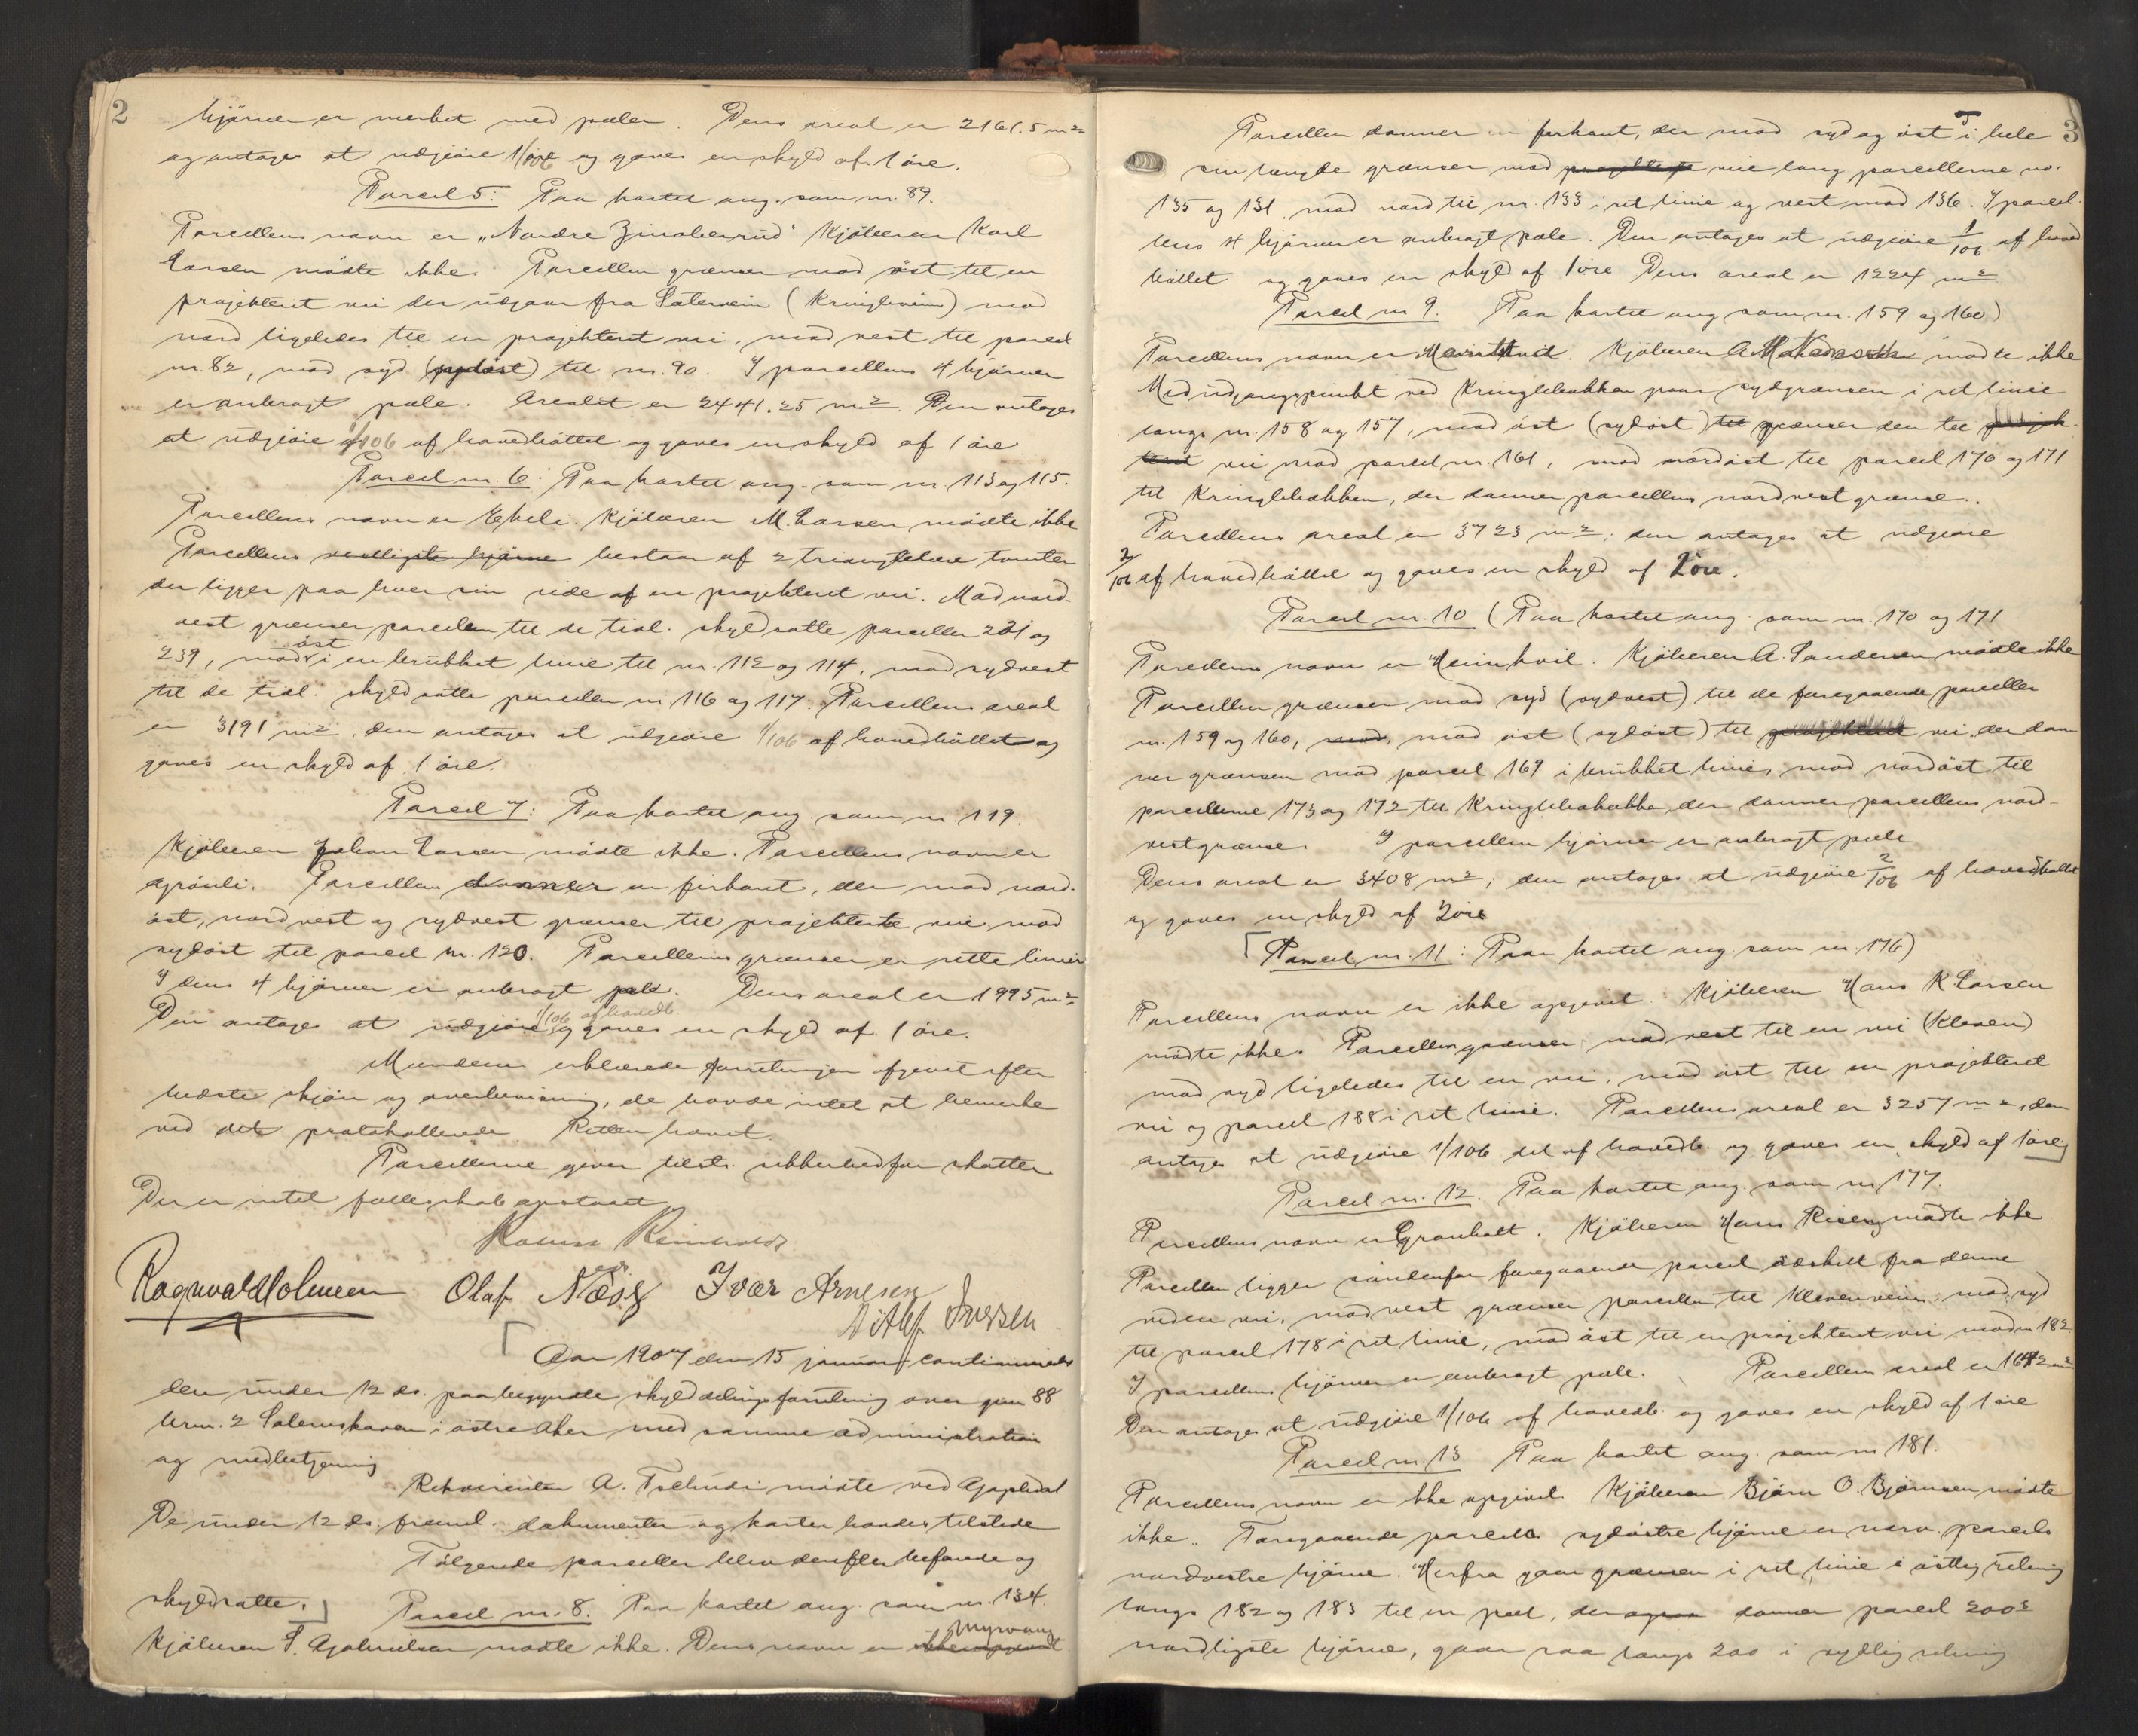 2
hjörner er merket med pæler. Dens areal er 2161.5 m²
og antages at udgjöre 1/106 og gaves en skyld af 1 öre.
Parcel 5: Paa kartet ang. som nr. 89.
Parcellens navn er „Nordre Zinoberrud" Kjöberen Karl
Larsen mödte ikke. Parcellen grænser mod öst til en
projekteret vei der udgaar fra Sætervein (Kringleveien) mod
nord ligeledes til en projekteret vei, mod vest til parcel
nr. 82, mod syd (sydöst) til nr. 90. I parcellens 4 hjörner
er anbragt pæle. Arealet er 2441.25 m². Den antages
at udgjöre 1/106 af hovedböllet og gaves en skyld af 1 öre
Parcel nr. 6: Paa kartet ang. som nr. 113 og 115.
Parcellens navn er Ekeli. Kjöberen M. Larsen mödte ikke
Parcellens vestligste hjörne bestaar af 2 triangulære tomter
der ligger paa hver sin side af en projekteret vei. Mod nord-
vest grænser parcellen til de tidl. skyldsatte parceller 231 og
239, mod öst i en brukket linie til nr. 112 og 114, mod sydvest
til de tidl. skyldsatte parceller nr 116 og 117. Parcellens areal
er 3191 m², den antages at udgjöre 1/106 af hovedböllet og
gaves en skyld af 1 öre.
Parcel 7: Paa kartet ang. som nr. 119.
Kjöberen Johan Larsen mödte ikke. Parcellens navn er
Grönli. Parcellen danner en firkant, der mod nord-
öst, nordvest og sydvest grænser til projekterte veie, mod
sydöst til parcel nr. 120. Parcellens grænser er rette linier
I dens 4 hjörner er anbragt pæle. Dens areal er 1995 m²
Den antages at udgjöre 1/106 af hovedb. og gaves en skyld af 1 öre.
Mændene erklærede forretningen afgivet efter
bedste skjön og overbevisning, de havde intet at bemerke
ved det protokollerede. Retten hævet.
Parcellerne giver tilstr. sikkerhed for skatter
Der er intet fælleskab opstaaet
Ragnvald Holmsen Olaf Næss Ivar Arnesen
Ditlef Iversen
Aar 1907 den 15 januar continueredes
den under 12 ds. paabegyndte skylddelingsforretning over gnr 88
brn. 2 Solemskoven i östre Aker med samme administration
og medbetjening
Rekvirenten A. Tschudi mödte ved Gjapledal
De under 12 ds. freml. dokumenter og karter havdes tilstede
Fölgende parceller blev derefter befarede og
skyldsatte.
Parcel nr. 8. Paa kartet ang. som nr. 134.
Kjöberen S. Gabrielsen mödte ikke. Dens navn er ikke opgivet Myrvang
3
Parcellen danner en firkant, der mod syd og öst i hele
sin længde grænser mod projekteret vei langs parcellerne no.
135 og 131, mod nord til nr. 133 i ret linie og vest mod 136. I parcel-
lens 4 hjörner er anbragt pæle. Den antages at udgjöre 1/106 af hoved
böllet og gaves en skyld af 1 öre Dens areal er 1224 m²
Parcel nr 9. Paa kartet ang som nr. 159 og 160)
Parcellens navn er Kjöberen mödte ikke
Med udgangspunkt ved Kringlebækken gaar sydgrænsen i ret linie
langs nr. 158 og 157, mod öst (sydöst) til grænser den til projek-
teret vei mod parcel nr. 161, mod nordöst til parcel 170 og 171
til Kringlebækken, der danner parcellens nordvest grænse.
Parcellens areal er 3723 m²; den antages at udgjöre
2/106 af hovedböllet og gaves en skyld af 2 öre.
Parcel nr. 10 (Paa kartet ang som nr. 170 og 171
Parcellens navn er Heimkvil. Kjöberen A. Sandersen mödte ikke
Parcellen grænser mod syd (sydvest) til de foregaaende parceller
nr. 159 og 160, mod, mod öst (sydöst) til projekteret vei, der dan
ner grænsen mod parcel 169 i brukket linie, mod nordöst til
parcellerne 173 og 172 til Kringlebækken, der danner parcellens nord-
vestgrænse. I parcellens hjörner er anbragt pæle
Dens areal er 3408 m²; den antages at udgjöre 2/106 af hovedböllet
og gaves en skyld af 2 öre
Parcel nr. 11: Paa kartet ang. som nr. 176)
Parcellens navn er ikke opgivet. Kjöberen Hans K. Larsen
mödte ikke. Parcellen grænser mod vest til en vei (Kleven)
mod syd ligeledes til en vei, mod öst til en projekteret
vei og parcel 188 i ret linie. Parcellens areal er 3257 m², den
antages at udgjöre 1/106 del af hovedb. og gaves en skyld af 1 öre
Parcel nr. 12. Paa kartet ang. som nr 177.
Parcellens navn er Granholt. Kjöberen Hans Riseng mödte ikke
Parcellen ligger söndenfor foregaaende parcel adskilt fra denne
ved en vei, mod vest grænser parcellen til Klevenveien, mod syd
til parcel 178 i ret linie, mod öst til en projekteret vei mod nr 182
I parcellens hjörner er anbragt pæle. Parcellens areal er 1642 m²
Den antages at udgjöre 1/106 af hovedb. og gaves en skyld af 1 öre
Parcel nr. 13 Paa kartet ang. som nr 181.
Parcellens navn er ikke opgivet. Kjöberen Björn O. Björnsen mödte
ikke. Foregaaende parcels sydöstre hjörne er nærv. parcels
nordvestre hjörne. Herfra gaar grænsen i ret linie i östlig retning
langs 182 og 183 til en pæl, der ogsaa danner parcel 200s
nordligste hjörne, gaar saa langs 200 i sydlig retning